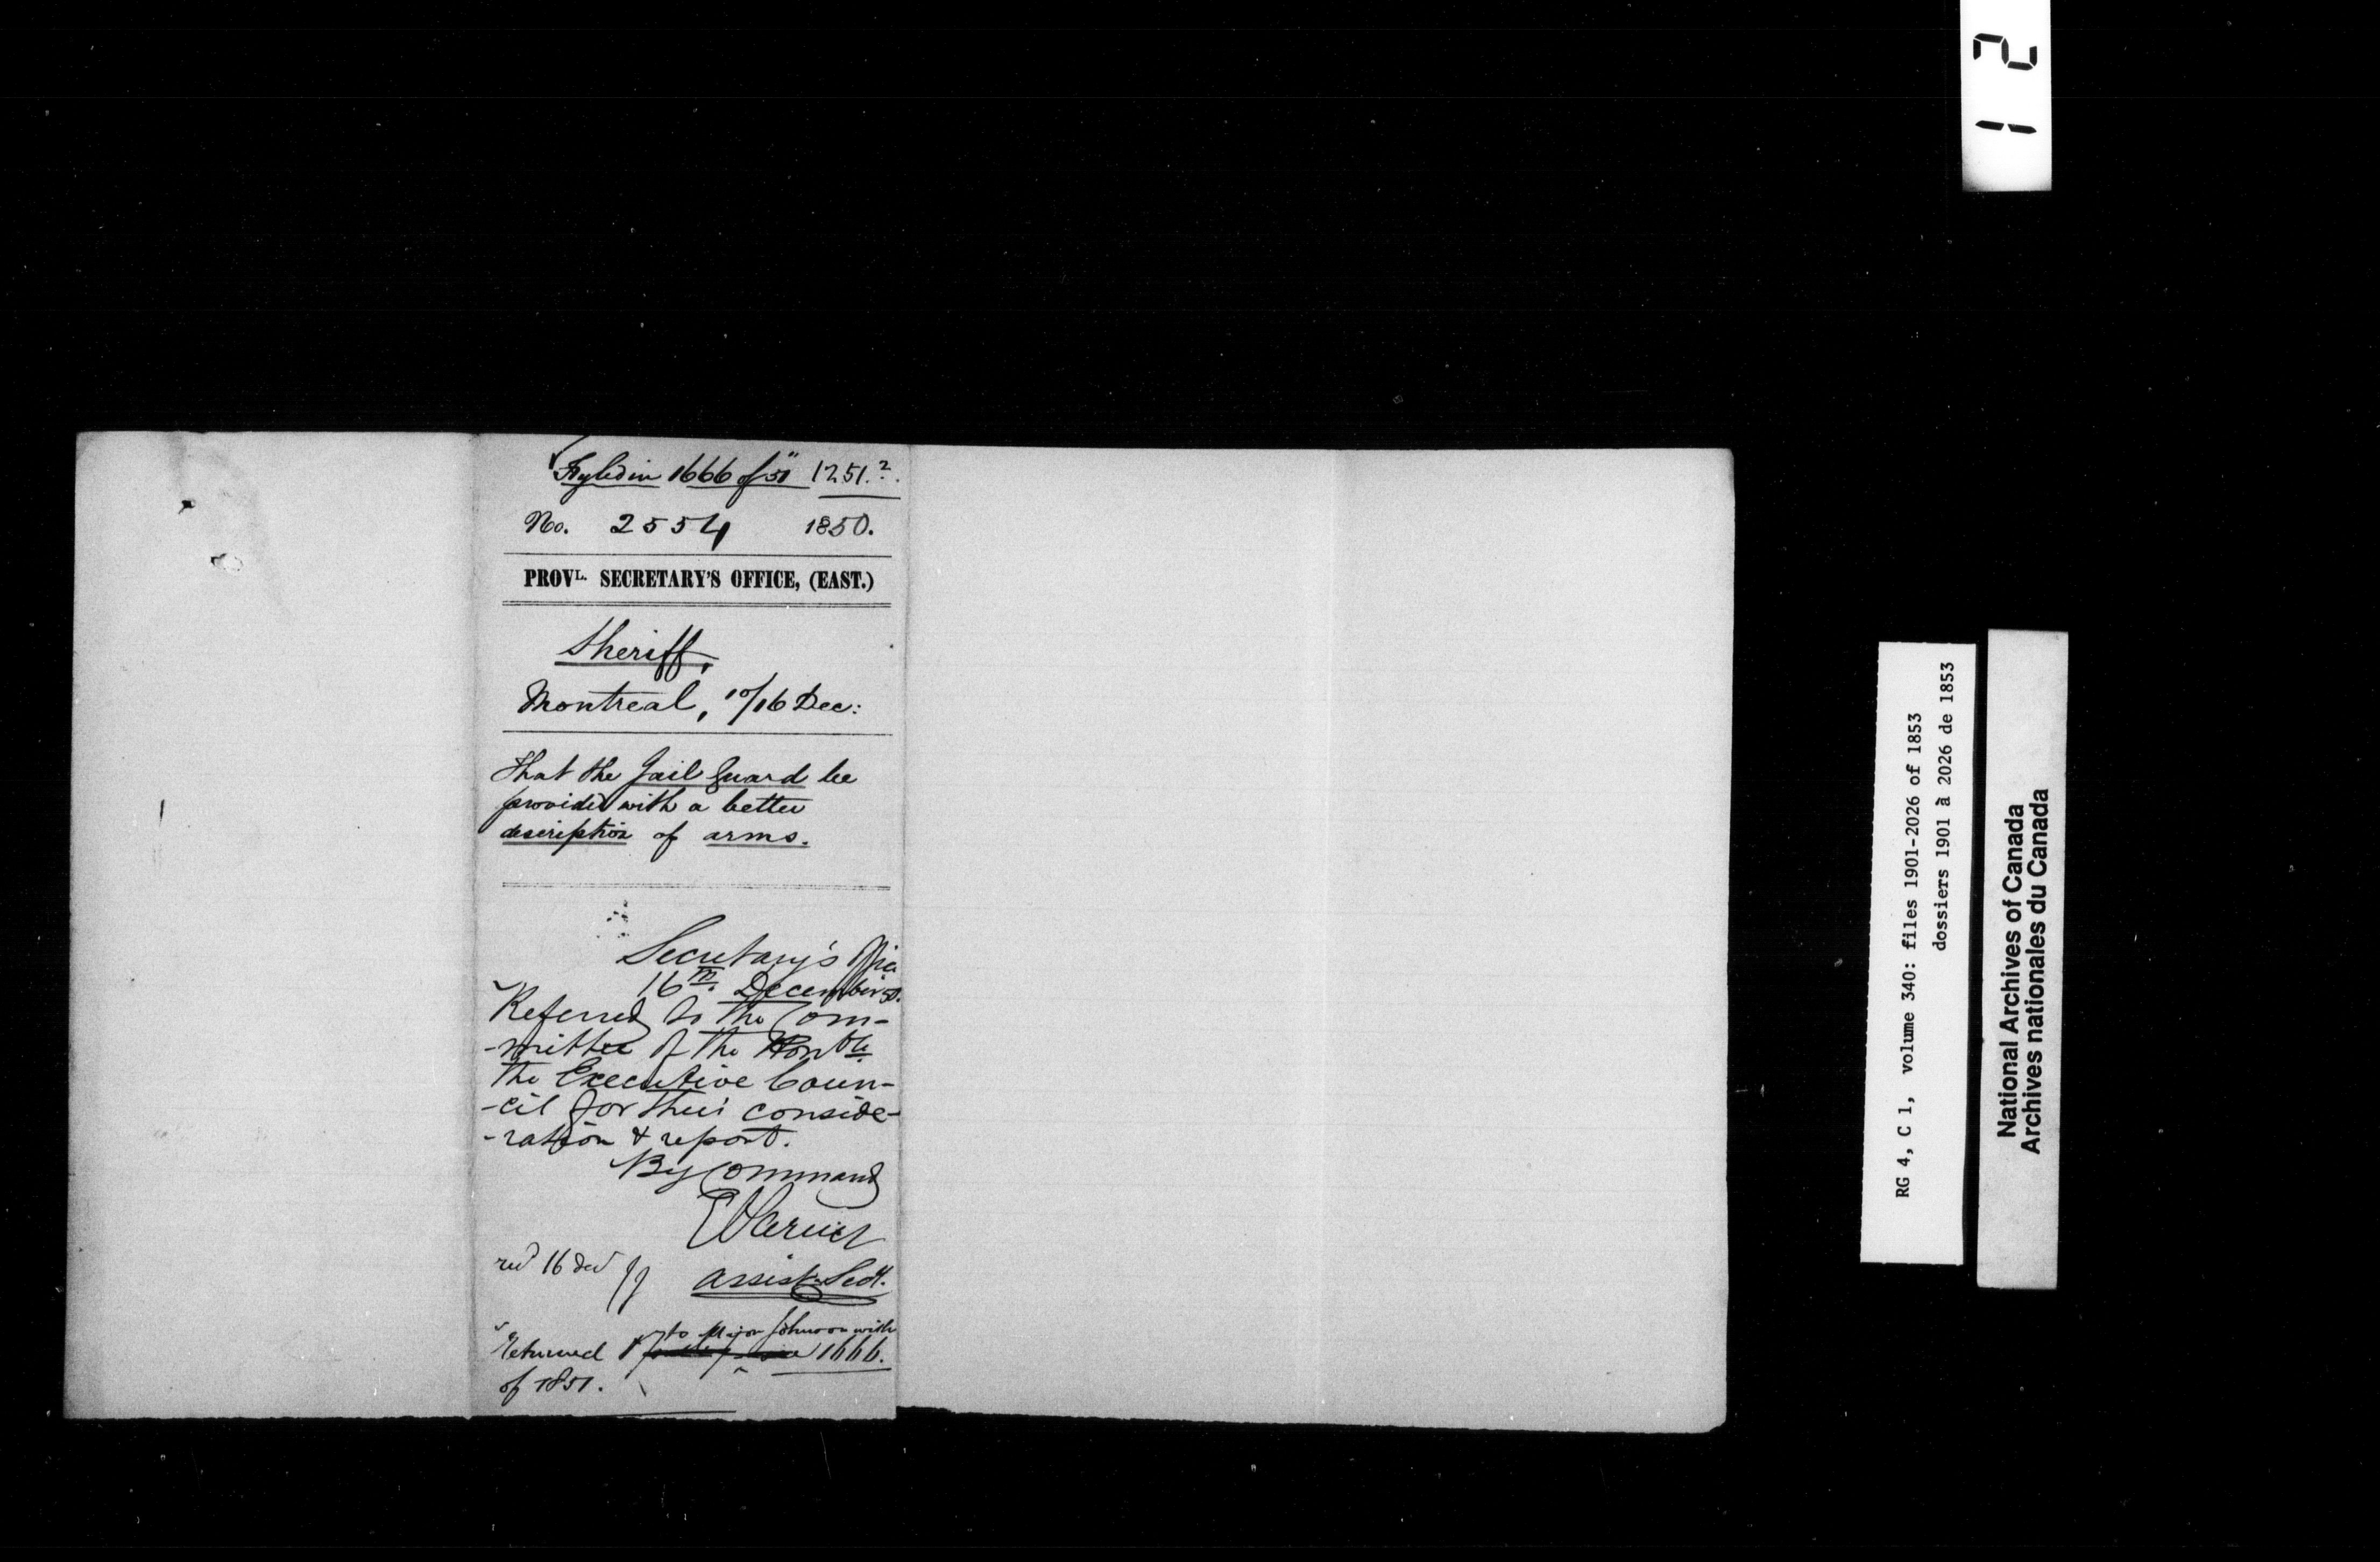 Fyled in 1666 of 51" 1251.2.
No. 2554 1850.
PROVL. SECRETARY'S OFFICE, (EAST.)
Sheriff,
Montreal, 10/16 Dec:
That the Jail Guard be
provided with a better
description of arms.
Secretary's Office
16th. December 50.
Referred to the Com-
-mittee of the Honble.
the Executive Coun-
-cil for their conside-
-ration & report.
By Command
Assist. Secy.
16 Dec
to Major Johnson with
Returned 1666.
of 1851.
12
RG 4, C 1, volume 340: files 1901-2026 of 1853
dossiers 1901 à 2026 de 1853
National Archives of Canada
Archives nationales du Canada